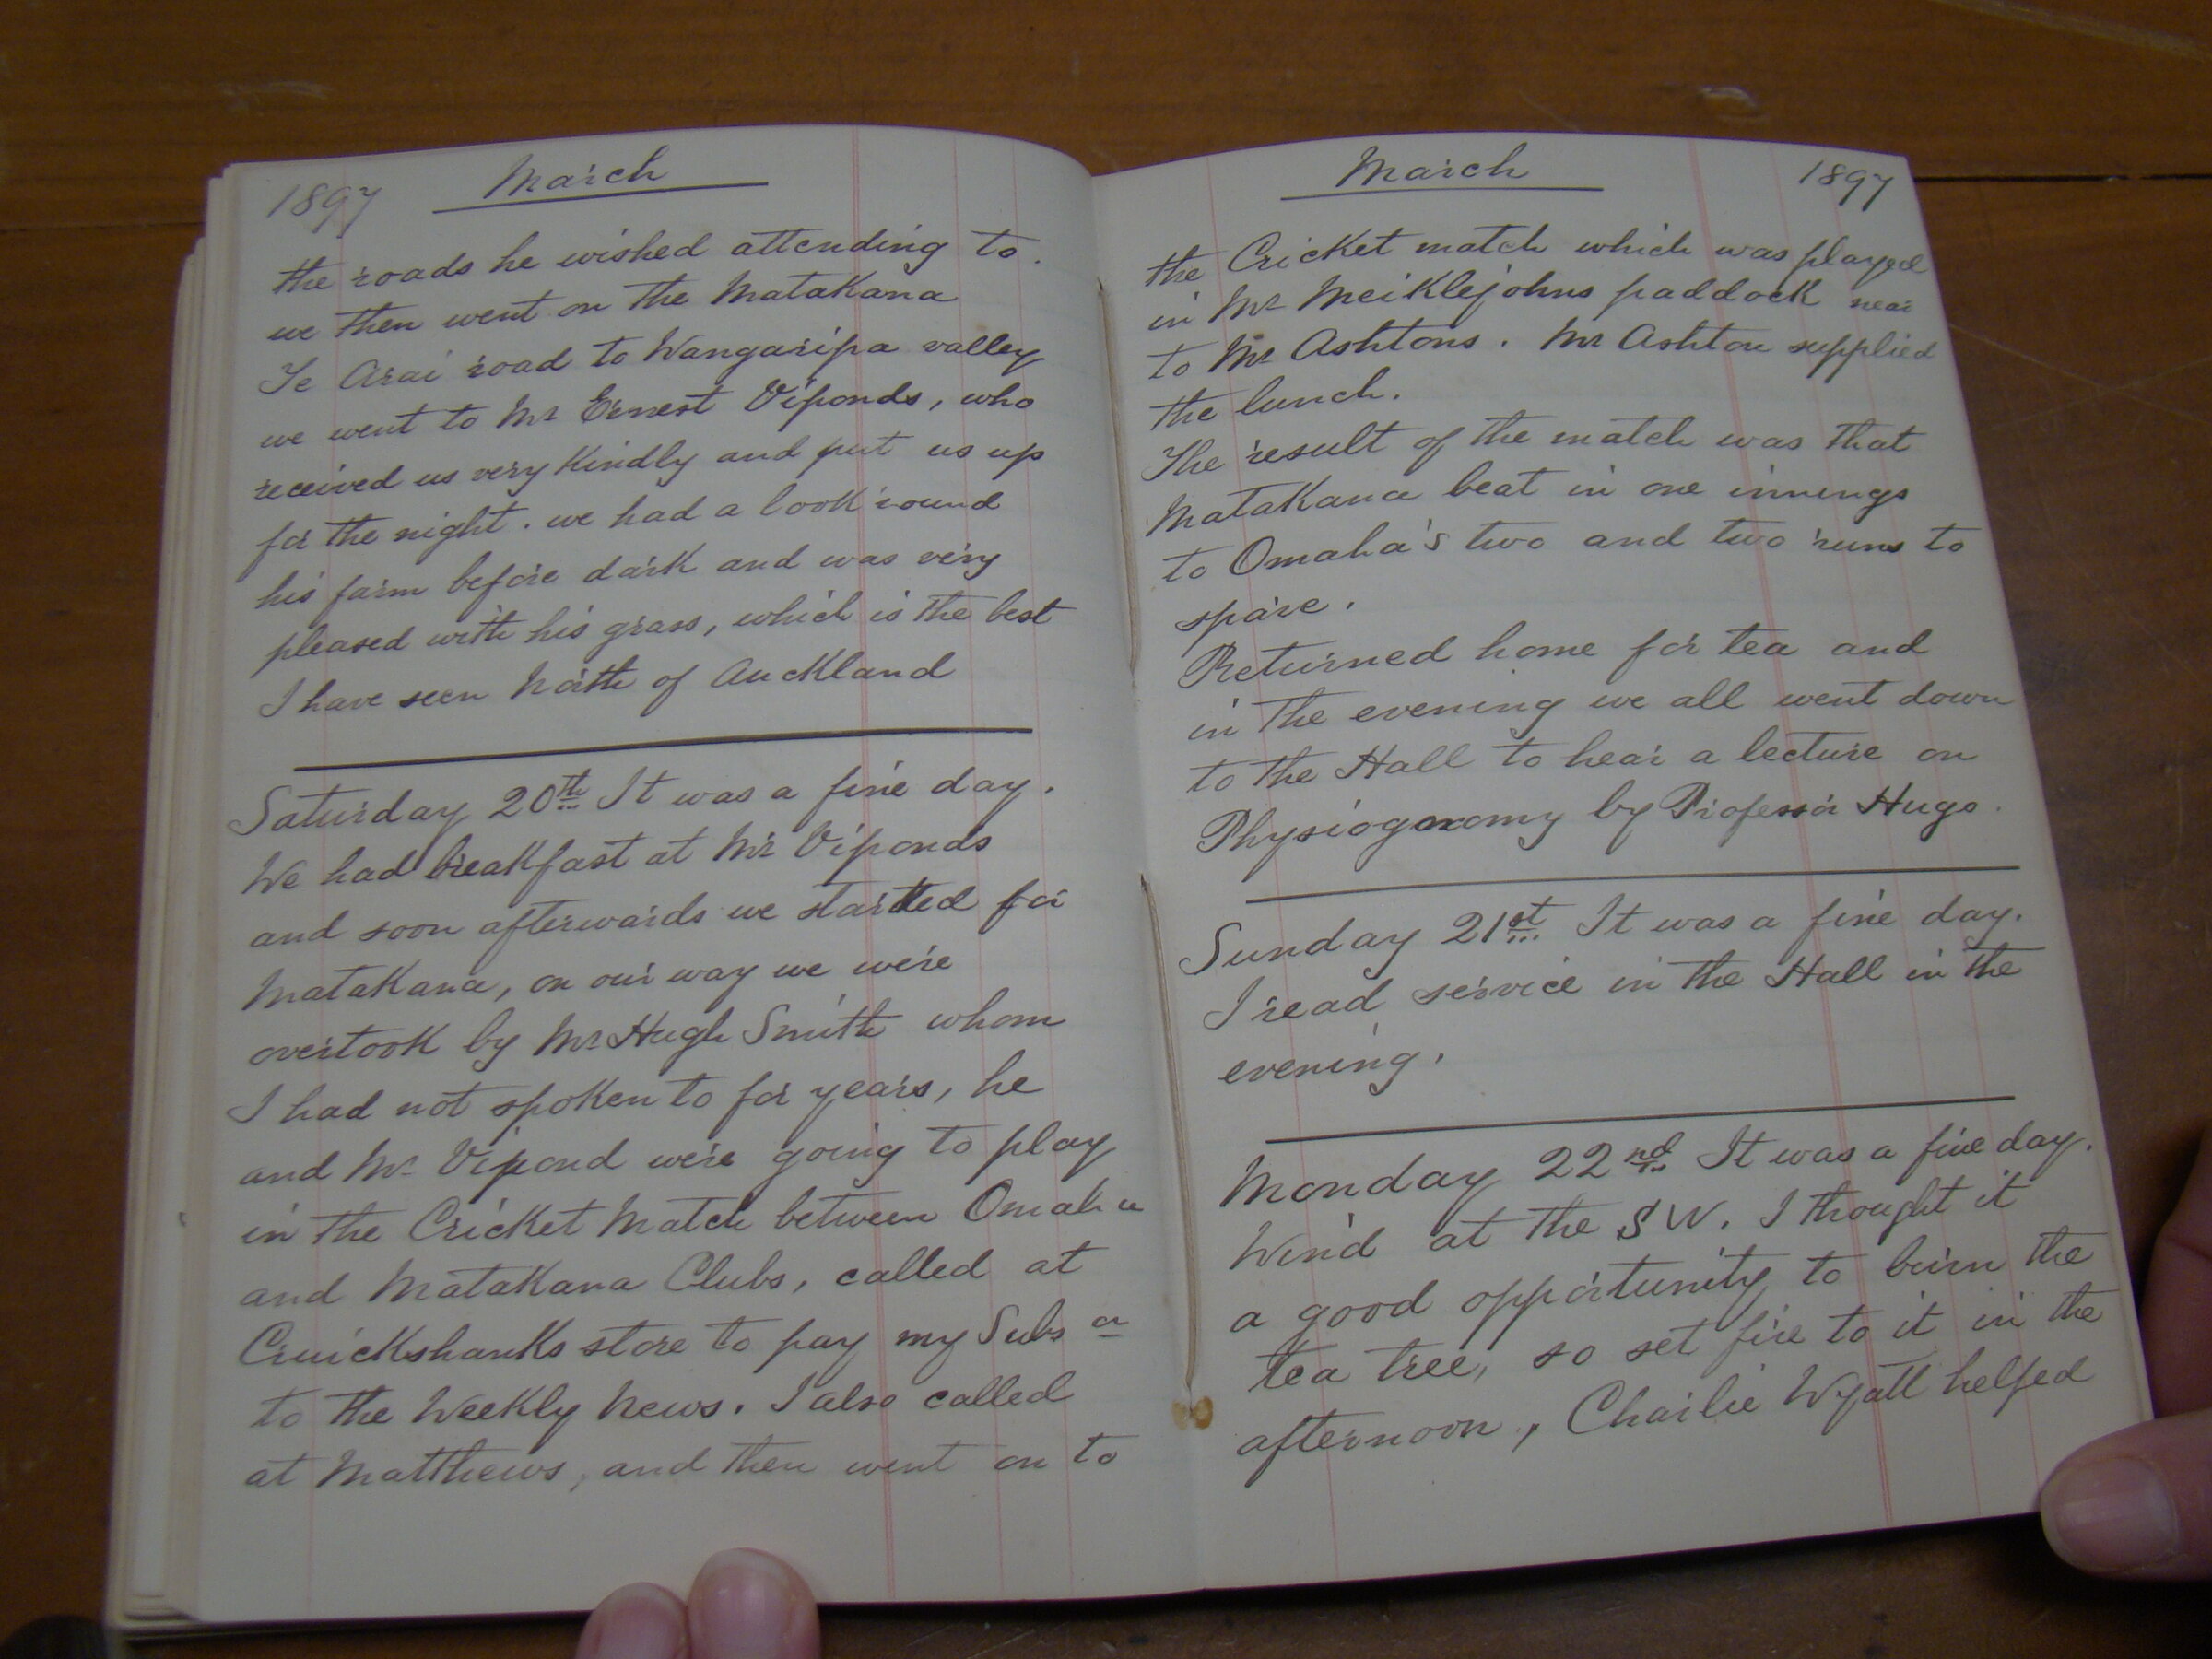 1897 March
the roads he wished attending to.
we then went on the Matakana
Te Arai road to Wangaripa valley
we went to Mr Ernest Viponds, who
received us very Kindly and put us up
for the night. we had a look round
his farm before dark and was very
pleased with his grass, which is the best
I have seen North of Auckland
Saturday 20th It was a fine day.
We had breakfast at Mr Viponds
and soon afterwards we started for
Matakana, on our way we were
overtook by Mr Hugh Smith whom
I had not spoken to for years, he
and Mr Vipond were going to play
in the Cricket Match between Omaha
and Matakana Clubs, called at
Cruickshanks store to pay my Subs
to the Weekly News. I also called
at Matthews, and then went on to
March 1897
the Cricket match which was played
in Mr Meiklejohns paddock near
to Mr Ashtons. Mr Ashton supplied
the lunch.
The result of the match was that
Matakana beat in one innings
to Omaha's two and two runs to
spare.
Returned home for tea and
in the evening we all went down
to the Hall to hear a lecture on
Physiogonomy by Professor Hugo.
Sunday 21st It was a fine day.
I read service in the Hall in the
evening.
Monday 22nd It was a fine day.
Wind at the SW. I thought it
a good opportunity to burn the
tea tree, so set fire to it in the
afternoon, Charlie Wyatt helped